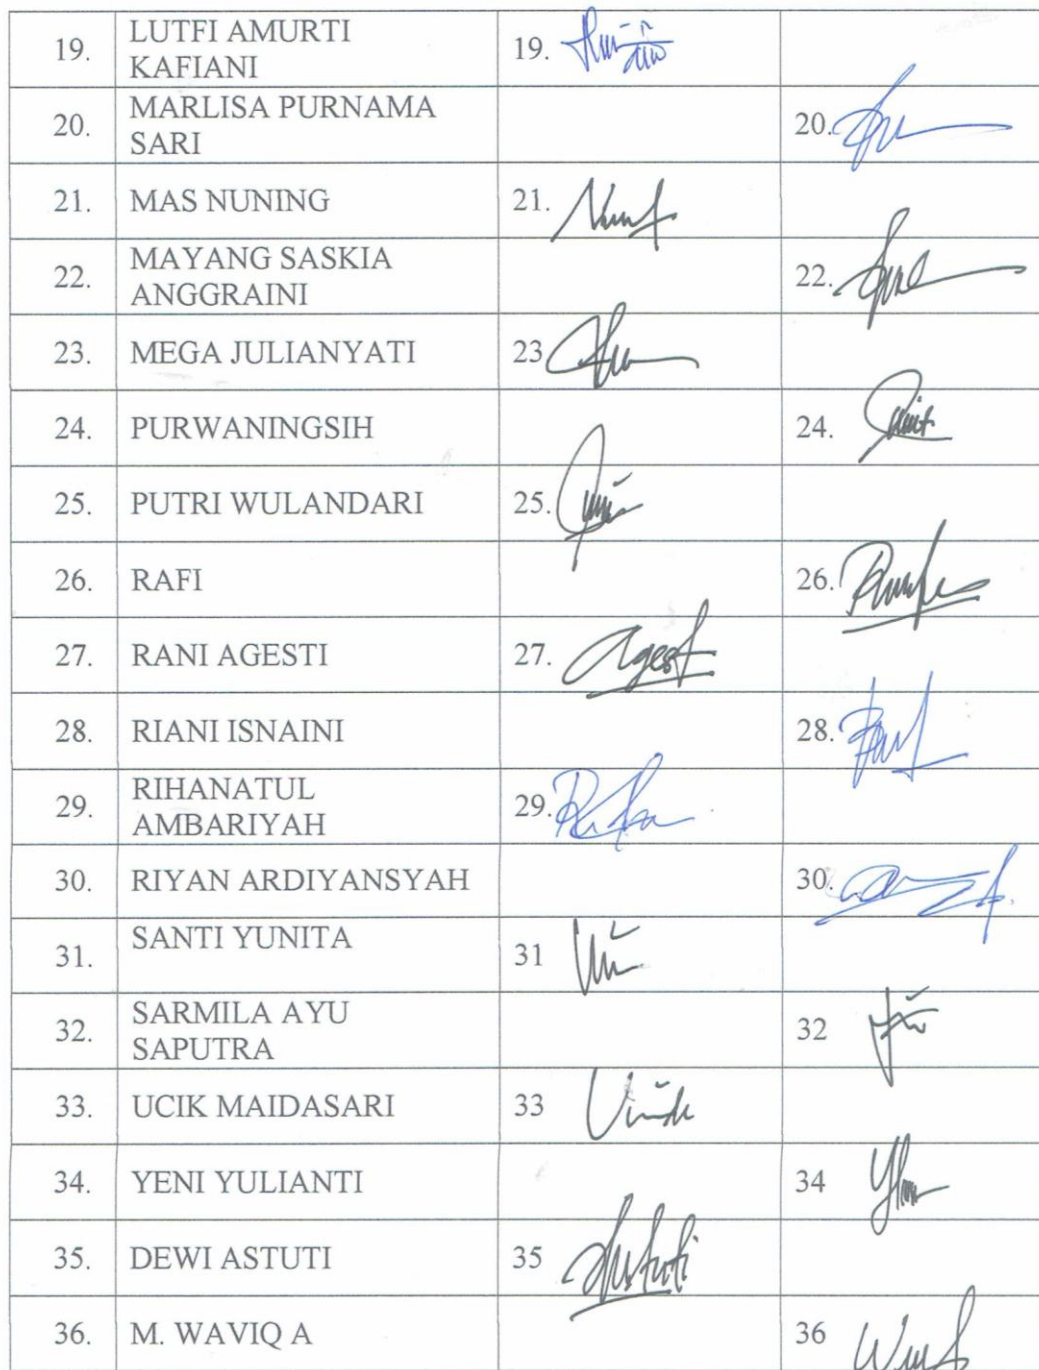 19. LUTFI AMURTI 19.
KAFIANI
20. MARLISA PURNAMA 20.
SARI
21. MAS NUNING 21.
22. MAYANG SASKIA 22.
ANGGRAINI
23. MEGA JULIANYATI 23
24. PURWANINGSIH 24.
25. PUTRI WULANDARI 25.
26. RAFI 26.
27. RANI AGESTI 27. Agest
28. RIANI ISNAINI 28.
29. RIHANATUL 29.
AMBARIYAH
30. RIYAN ARDIYANSYAH 30.
31. SANTI YUNITA 31
32. SARMILA AYU 32
SAPUTRA
33. UCIK MAIDASARI 33
34. YENI YULIANTI 34
35. DEWI ASTUTI 35 Astuti
36. M. WAVIQ A 36